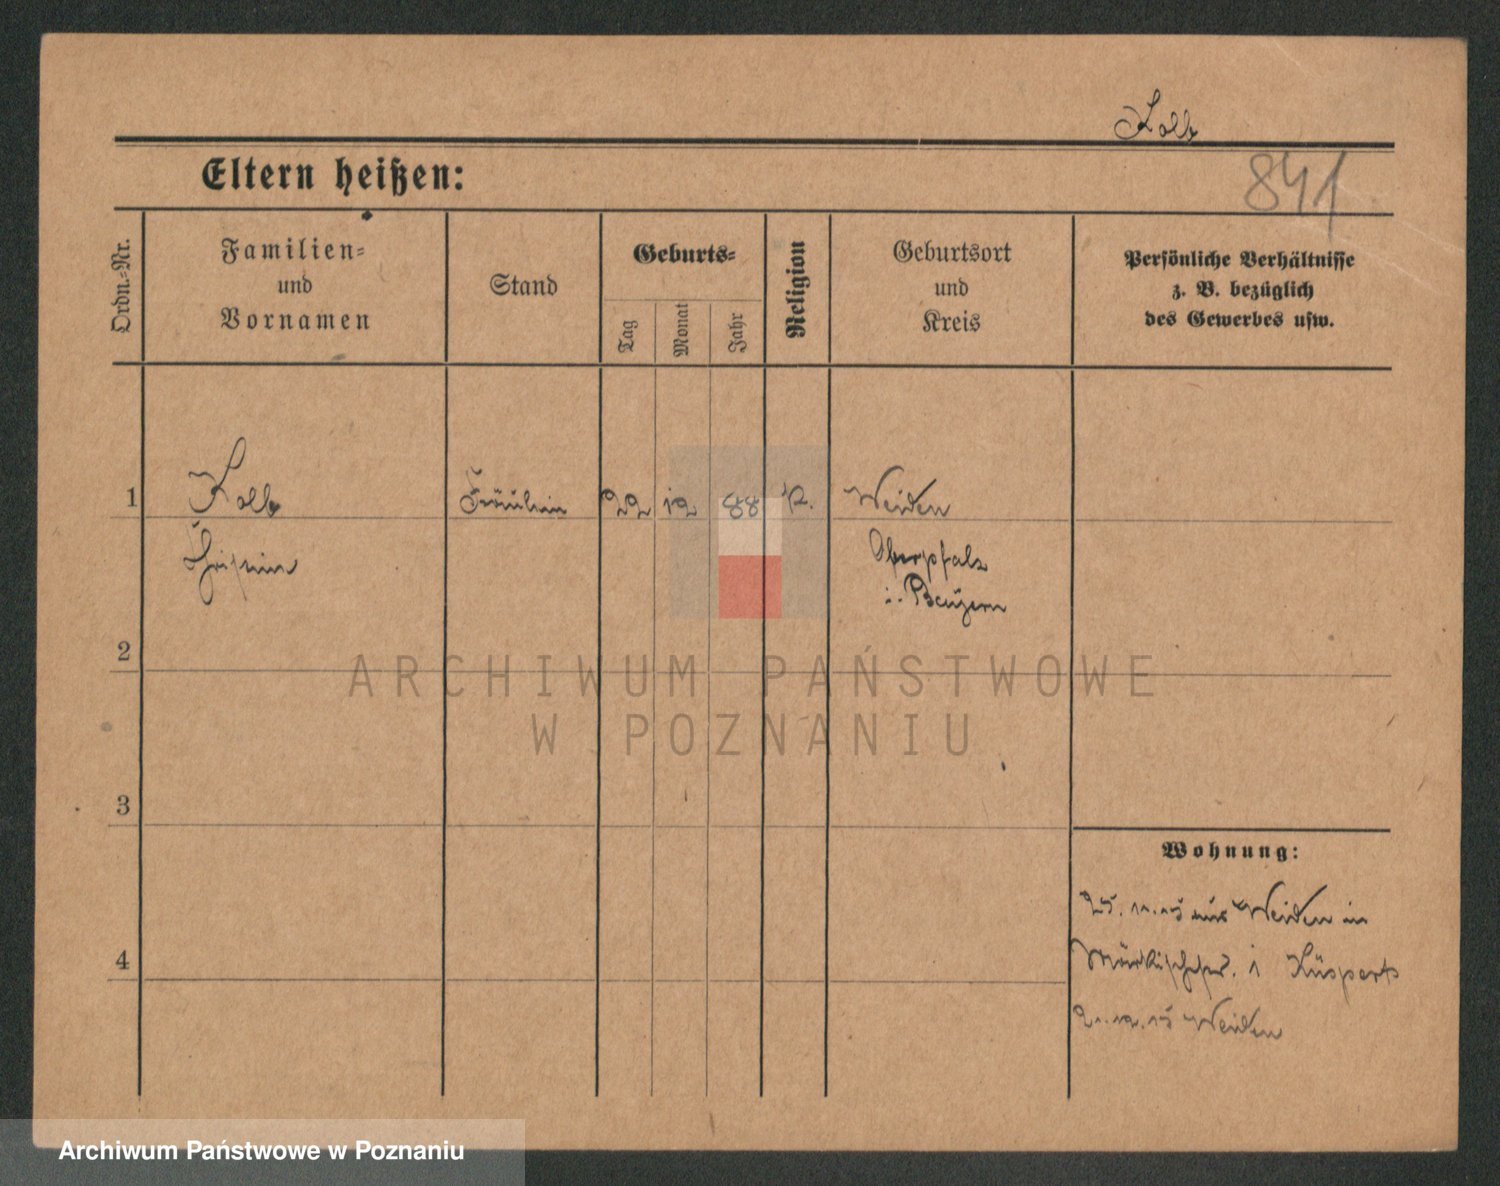 Kolb
Eltern heißen:
841
Ordn.-Nr.
Familien-
und
Vornamen
Stand
Geburts-
Tag
Monat
Jahr
Religion
Geburtsort
und
Kreis
Persönliche Verhältnisse
z. B. bezüglich
des Gewerbes usw.
1
Kolb
Fräulein
22
12
88
Weiden
Oberpfalz
i. Bayern
2
ARCHIWUM PAŃSTWOWE
W POZNANIU
3
Wohnung:
25. 11. 15 aus Weiden in
4
1 Küspert
21. 12. 15 Weiden
Archiwum Państwowe w Poznaniu